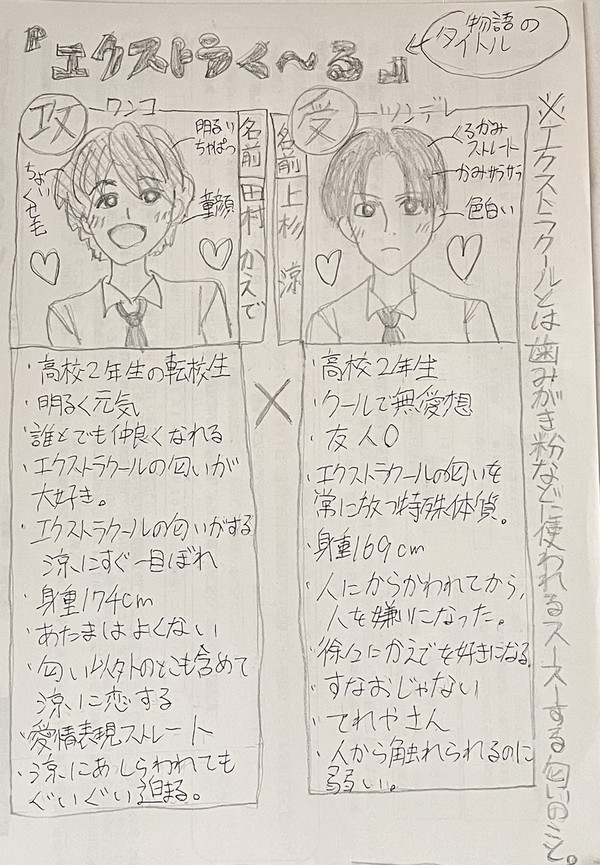 『エクストラく〜る』
←物語の
タイトル
攻
ワンコ
明るい
ちゃぱつ
ちょい
くせ毛
童顔
名前 田村 かえで
受
ツンデレ
くろかみ
ストレート
かみサラサラ
色白い
名前 上杉 涼
・高校2年生の転校生
・明るく元気
・誰とでも仲良くなれる
・エクストラクールの匂いが
大好き。
・エクストラクールの匂いがする
涼にすぐ一目ぼれ
・身重174cm
・あたまはよくない
・匂い以外のとこも含めて
涼に恋する
・愛情表現ストレート
・涼にあしらわれても
ぐいぐい迫まる。
×
・高校2年生
・クールで無愛想
・友人0
・エクストラクールの匂いを
常に放つ特殊体質。
・身重169cm
・人にからかわれてから、
人を嫌いになった。
・徐々にかえでを好きになる
・すなおじゃない
・てれやさん
・人から触れられるのに
弱い。
※エクストラクールとは歯みがき粉などに使われるスースーする匂いのこと。